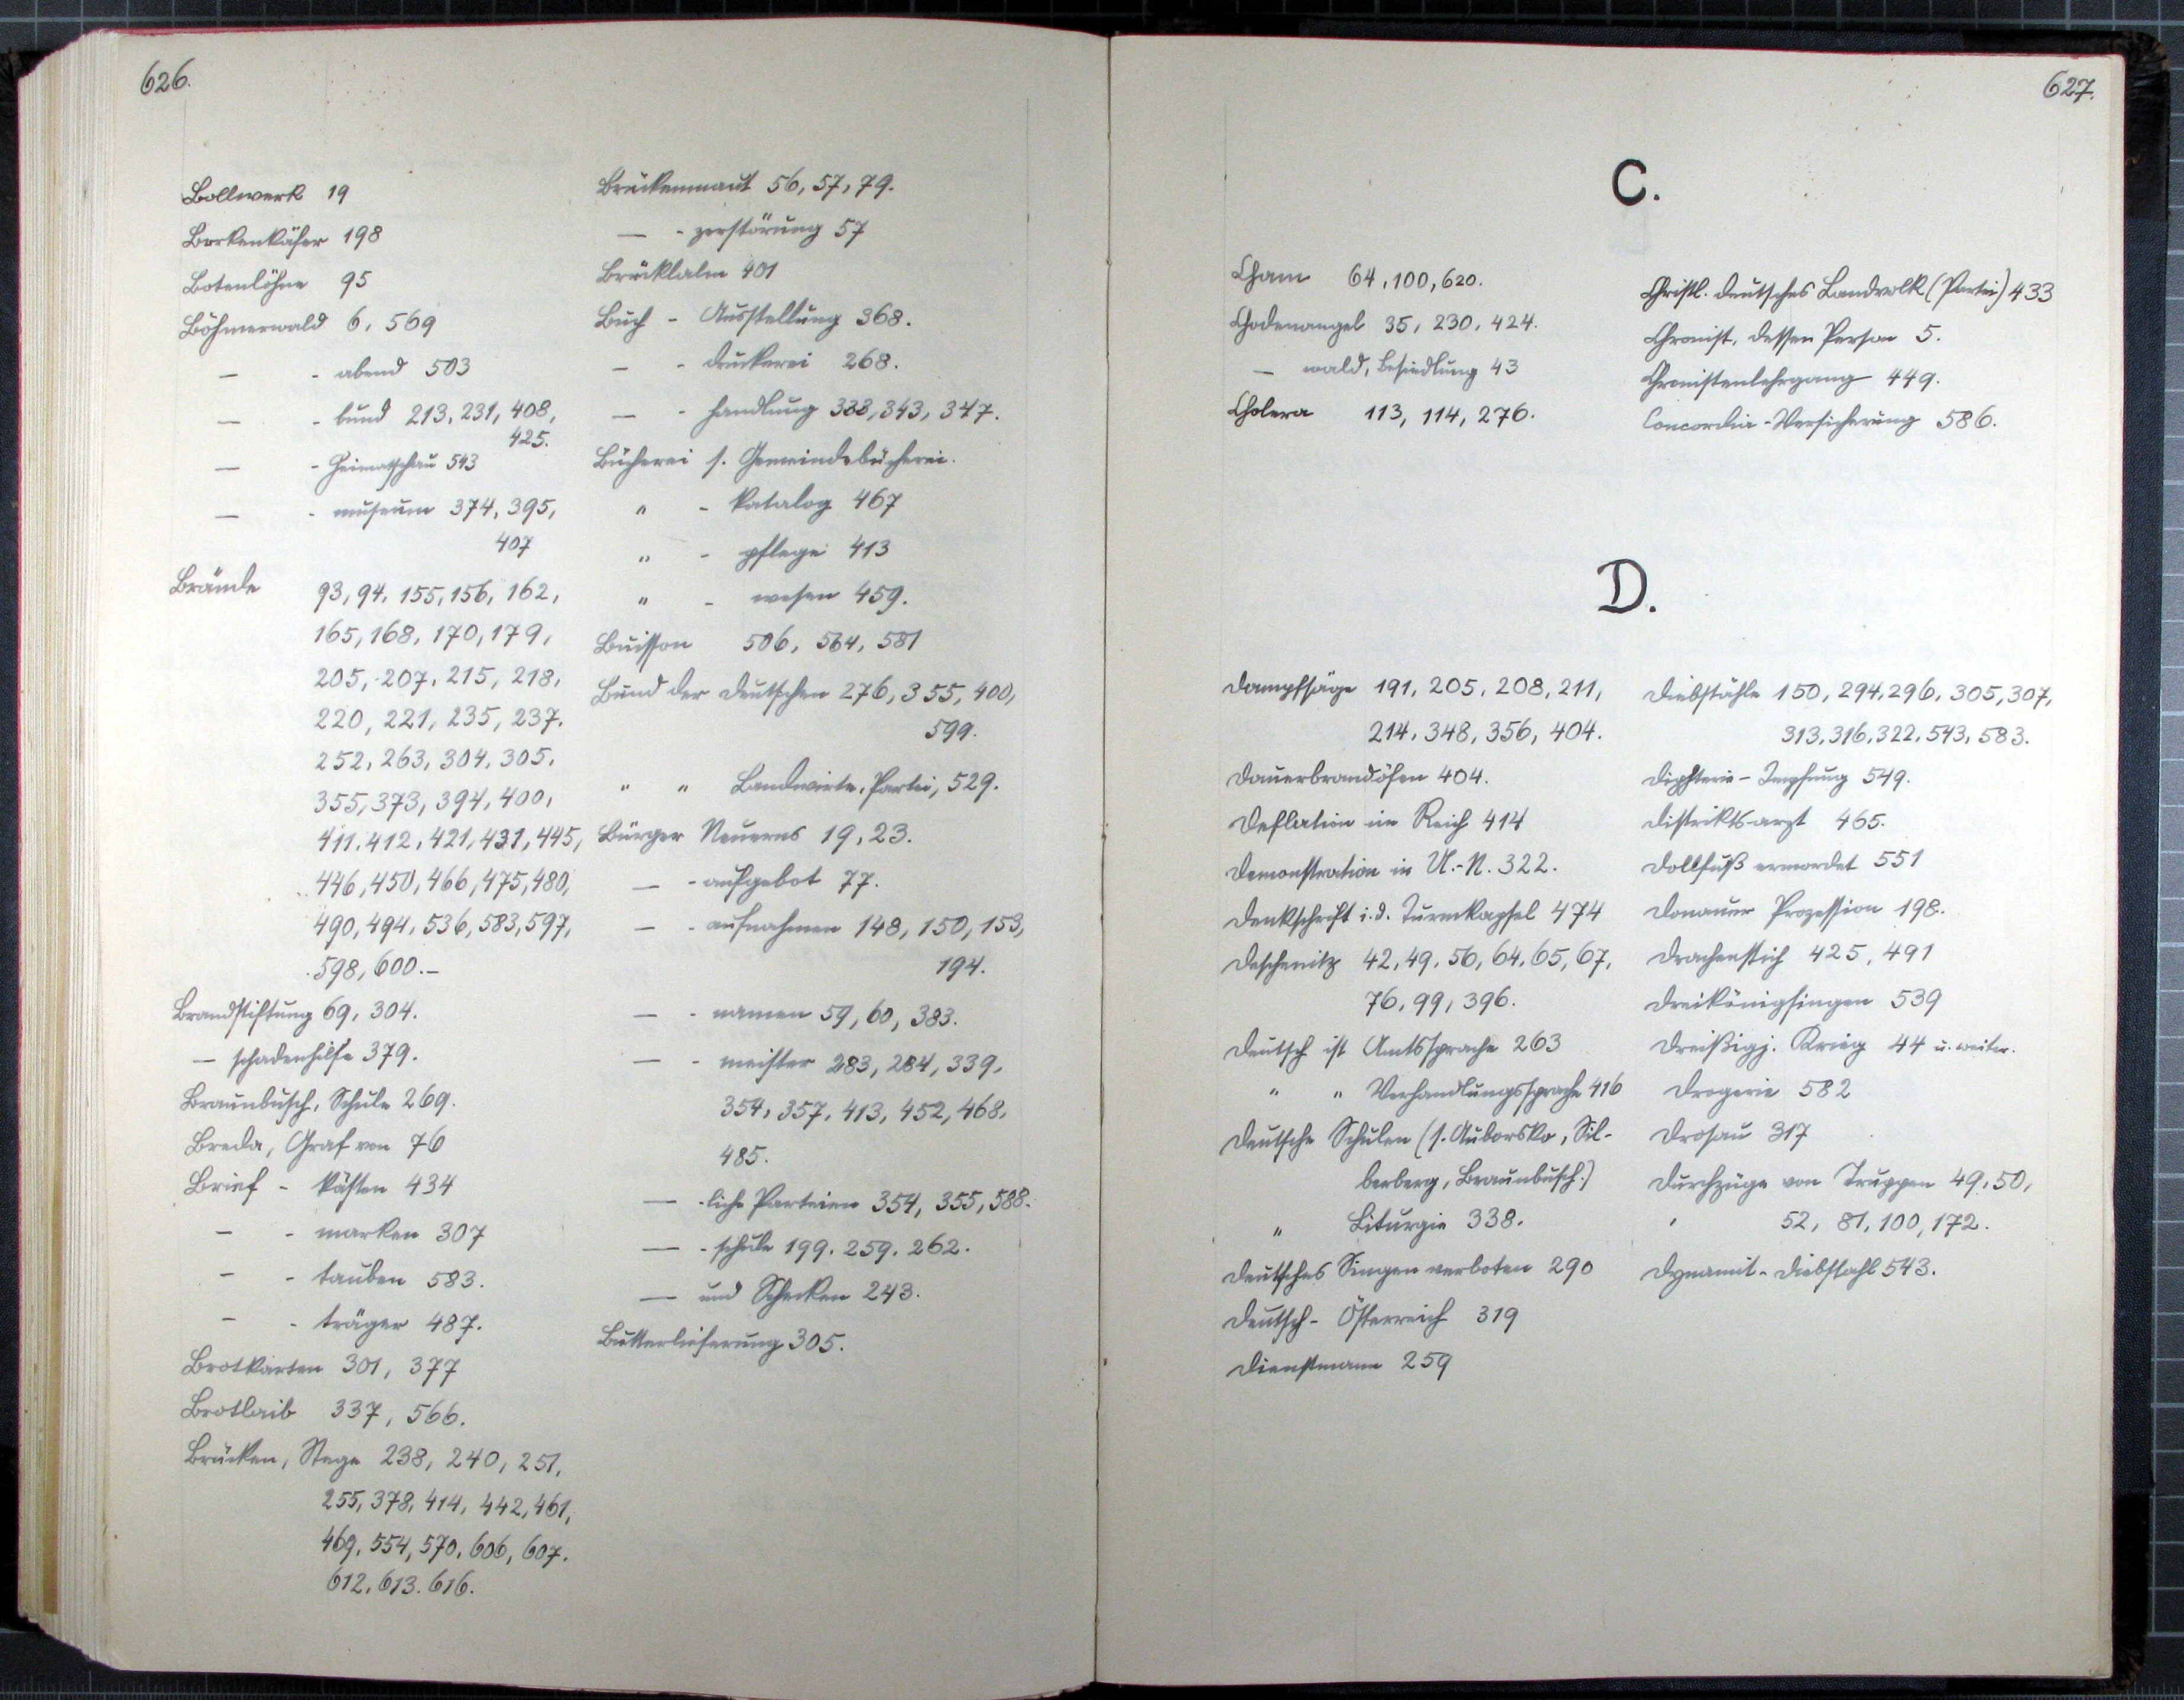 626.
Bollwerk 19
Borkenkäfer 198
Botenlöhne 95
Böhmerwald 6, 569
— - abend 503
— - bund 213, 231, 408,
425.
— - Heimatschau 543
— - museum 374, 395,
407
Brände 93, 94, 155, 156, 162,
165, 168, 170, 179,
205, 207, 215, 218,
220, 221, 235, 237.
252, 263, 304, 305.
355, 373, 394, 400,
411, 412, 421, 431, 445,
446, 450, 466, 475, 480,
490, 494, 536, 583, 597,
598, 600.-
Brandstiftung 69, 304.
— schadenhilfe 379.
Braunbusch, Schule 269.
Breda, Graf von 76
Brief - kästen 434
- - marken 307
- - tauben 583.
- - träger 487.
Brotkarten 301, 377
Brotlaib 337, 566.
Brücken, Stege 238, 240, 251,
255, 378, 414, 442, 461,
469, 554, 570, 606, 607.
612, 613. 616.
Brückenmaut 56, 57, 79.
— - zerstörung 57
Brücklalm 401
Buch - Ausstellung 368.
— - druckerei 268.
— - handlung 333, 343, 347.
Bücherei s. Gemeindebücherei.
" - katalog 467
" - pflege 413
" - wesen 459.
Buisson 506, 564, 581
Bund der Deutschen 276, 355, 400,
599.
" " Landwirte, Partei, 529.
Bürger Neuerns 19, 23.
— - aufgebot 77.
— - aufnahmen 148, 150, 153,
194.
— - namen 59, 60, 383.
— - meister 283, 284, 339,
354, 357, 413, 452, 468,
485.
— - liche Parteien 354, 355, 588.
— - schule 199. 259. 262.
— und Schecken 243.
Butterlieferung 305.
627.
C.
Cham 64, 100, 620.
Chodenangel 35, 230, 424.
— wald, Besiedlung 43
Cholera 113, 114, 276.
Christl. deutsches Landvolk (Partei) 433
Chronist, dessen Person 5.
Chronistenlehrgang 449.
Concordia-Versicherung 586.
D.
Dampfsäge 191, 205, 208, 211,
214, 348, 356, 404.
Dauerbrandöfen 404.
Deflation im Reich 414
Demonstration in U.-N. 322.
Denkschrift i. d. Turmkapsel 474
Deschenitz 42, 49, 56, 64, 65, 67,
76, 99, 396.
Deutsch ist Amtssprache 263
" " Verhandlungssprache 416
Deutsche Schulen (s. Auborsko, Sil-
berberg, Braunbusch.)
" Liturgie 338.
Deutsches Singen verboten 290
Deutsch-Österreich 319
Dienstmann 259
Diebstähle 150, 294, 296, 305, 307,
313, 316, 322, 543, 583.
Diphterie-Impfung 549.
Distriktsarzt 465.
Dollfuß ermordet 551
Donauer Prozession 198.
Drachenstich 425, 491
Dreikönigsingen 539
Dreißigj. Krieg 44 u. weiter.
Drogerie 582
Drosau 317
Durchzüge von Truppen 49, 50,
52, 81, 100, 172.
Dynamit-Diebstahl 543.